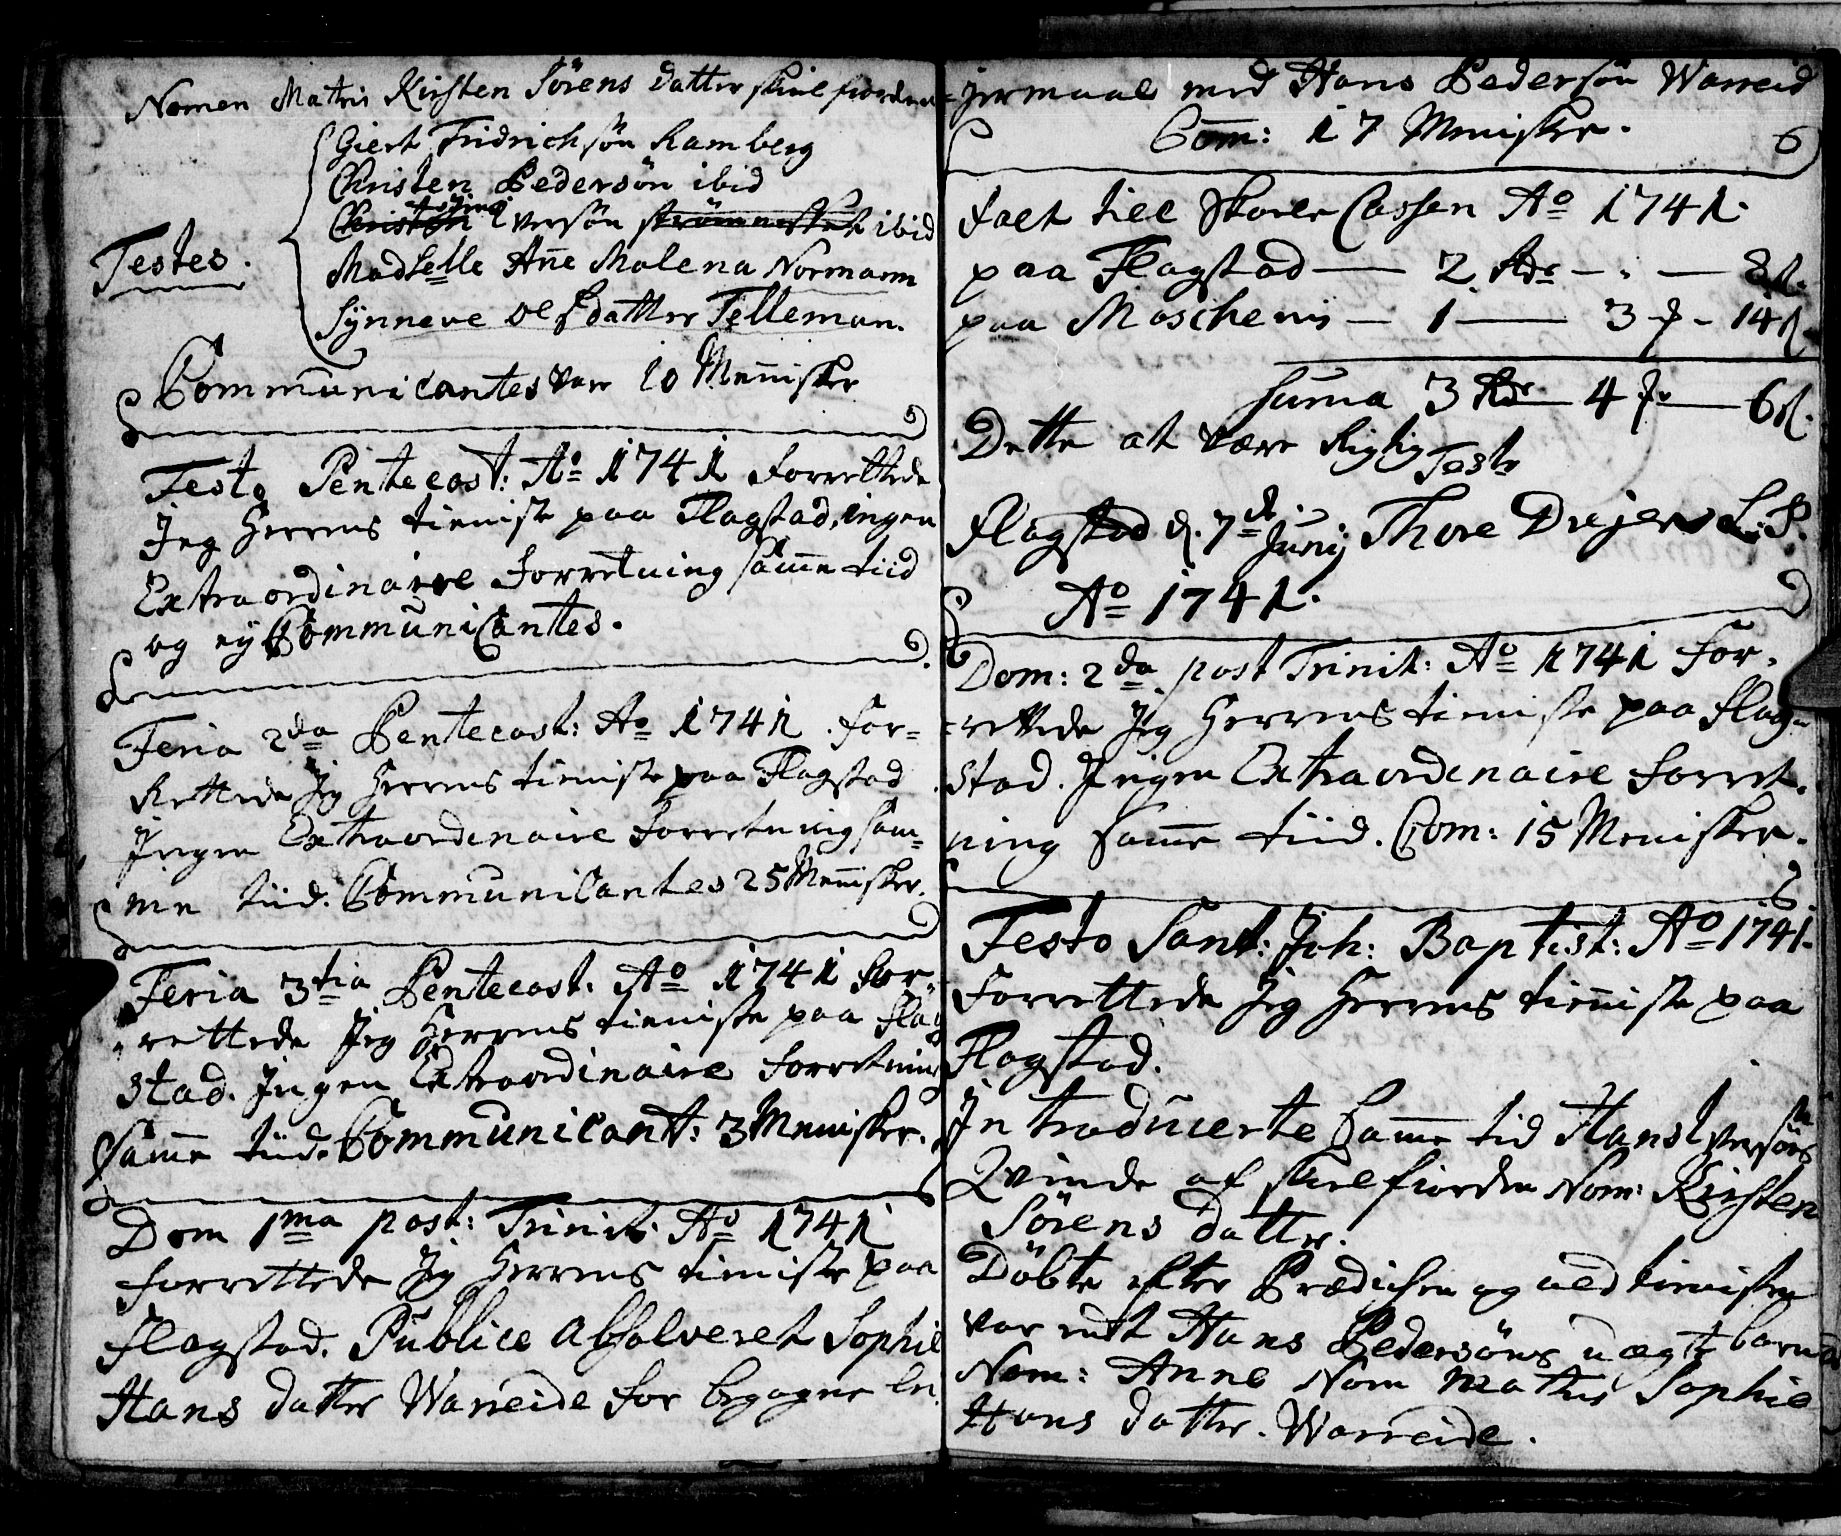 Nomen Matris Kirsten Sörens datter skielfiorden
Giert Fridrichsön Ramberg
Christen Pedersön ibid
Christen Iversön strömnestet ibid
Testes.
Madselle Añe Malena Normann
Synneve Olsdatter Telleman.
Communicantes vare 10 Meñisker
Festo Pentecost: Ao 1741 forrettede
Jeg Herrens tieniste paa Flagstad, ingen
Extraordinaire forretning sam̃e tiid
og ey Communicantes.
Feria 2da Pentecost: Ao 1741 for=
Rettede Jeg Herrens tieniste paa Flagstad
Ingen Extraordinaire forretning sam=
me tiid. Communicantes 25 Meñisker.
Feria 3tia Pentecost. Ao 1741 for=
rettede Jeg Herrens tieniste paa Flag
stad. Ingen Extraordinaire forretning
sam̃e tiid. Communicant: 3 Menisker.
Dom 1ma post: Trinit: Ao 1741
forrettede Jeg Herrens tieniste paa
Flagstad. Publice Absolveret Sophie
Hans datter Warreide for begagne le
=jermaal med Hans Pedersön Warreid
Com: 17 Menisker.
6
falt till Skoele Cassen Ao 1741.
paa Flagstad — 2 Rdr — . — 8 s.
paa Moschenis — 1 — 3 — 14 s
suma 3 Rdr — 4 — 6 s.
Dette at være Rigtig
Test
Flagstad d. 7de Junij Thore Drejer L. P.
Ao 1741.
Dom: 2da post Trinit: Ao 1741 for=
=rettede Jeg Herrens tieniste paa Flag=
stad. Ingen Extraordinaire forret=
ning sam̃e tiid. Com: 15 Menisker.
Festo Sanct: Joh: Baptist: Ao 1741.
forrettede Jeg Herrens tieniste paa
Flagstad.
Introducerte sam̃e tid Hans Iversöns
Qvinde af skielfiorden Nom: Kirsten
Sörens datter.
Döbte efter Prædichen og ved tienisten
var endt Hans Pedersöns uægte barn
Nom: Anne Nom Matris Sophie
Hans datter. Warreide.